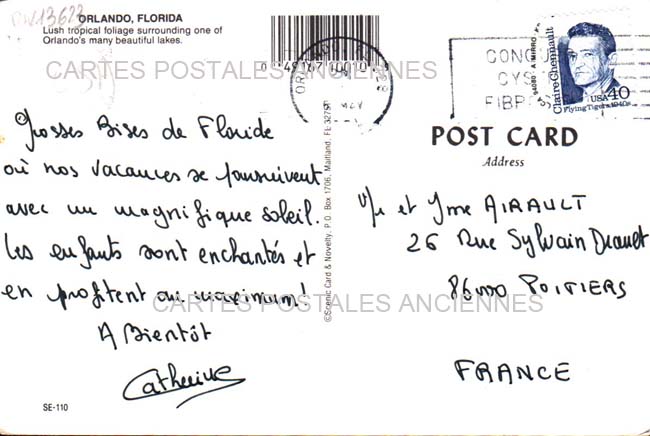 13623
ORLANDO, FLORIDA
Lush tropical foliage surrounding one of
Orlando's many beautiful lakes.
CARTES POSTALES ANCIENNES
Grosses Bises de Floride
où nos vacances se poursuivent
avec un magnifique soleil.
Les enfants sont enchantés et
en profitent au maximum!
A Bientôt
Catherine
SE-110
©Scenic Card & Novelty, P.O. Box 1706, Maitland, FL 32751
CONQ
CYS
FIBR
Claire Chennault
Flying Tigers 1940s
USA 40
POST CARD
Address
Mr et Mme AIRAULT
26 Rue Sylvain Drault
86000 POITIERS
CARTES POSTALES ANCIENNES
FRANCE